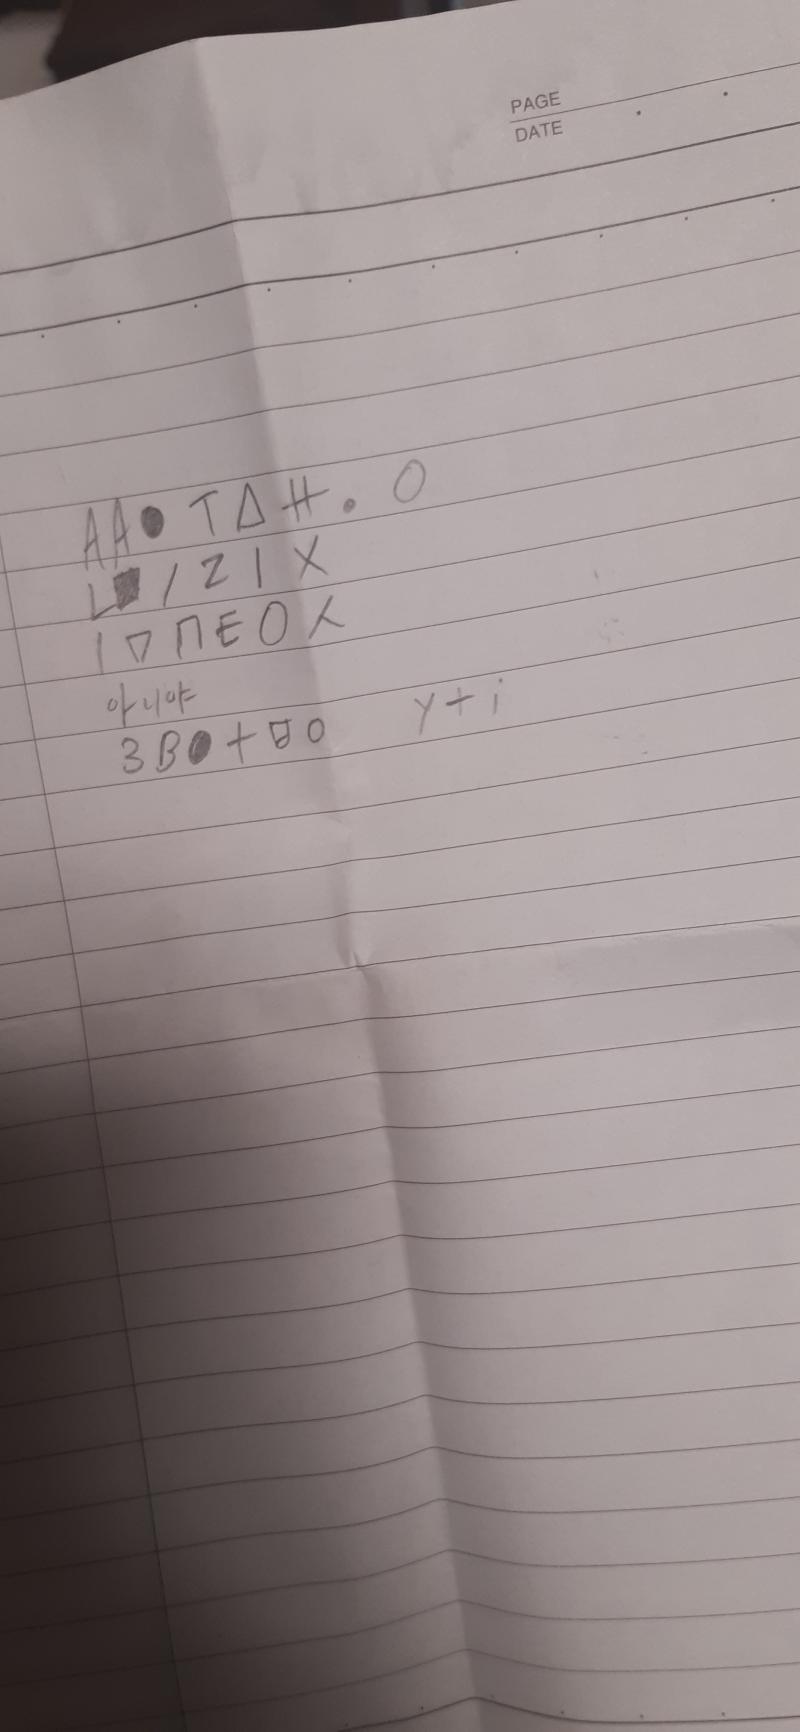 PAGE
DATE
AA●TΔH.O
L■/ZIX
I▽ΠEOX
아니야
3B●+ㅂO y+i